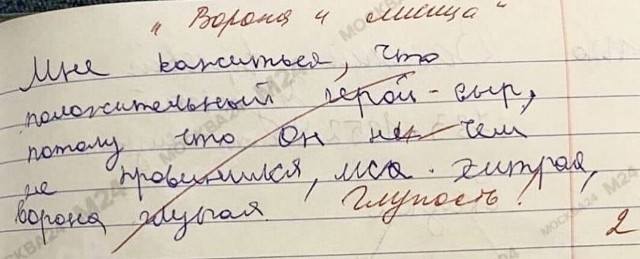 „Ворона и лисица"
Мне кажиться, что
положительный герой - сыр,
потому что он не чем
не провинился, лиса - хитрая,
ворона глупая. Глупость!
2
МОСКВА М24